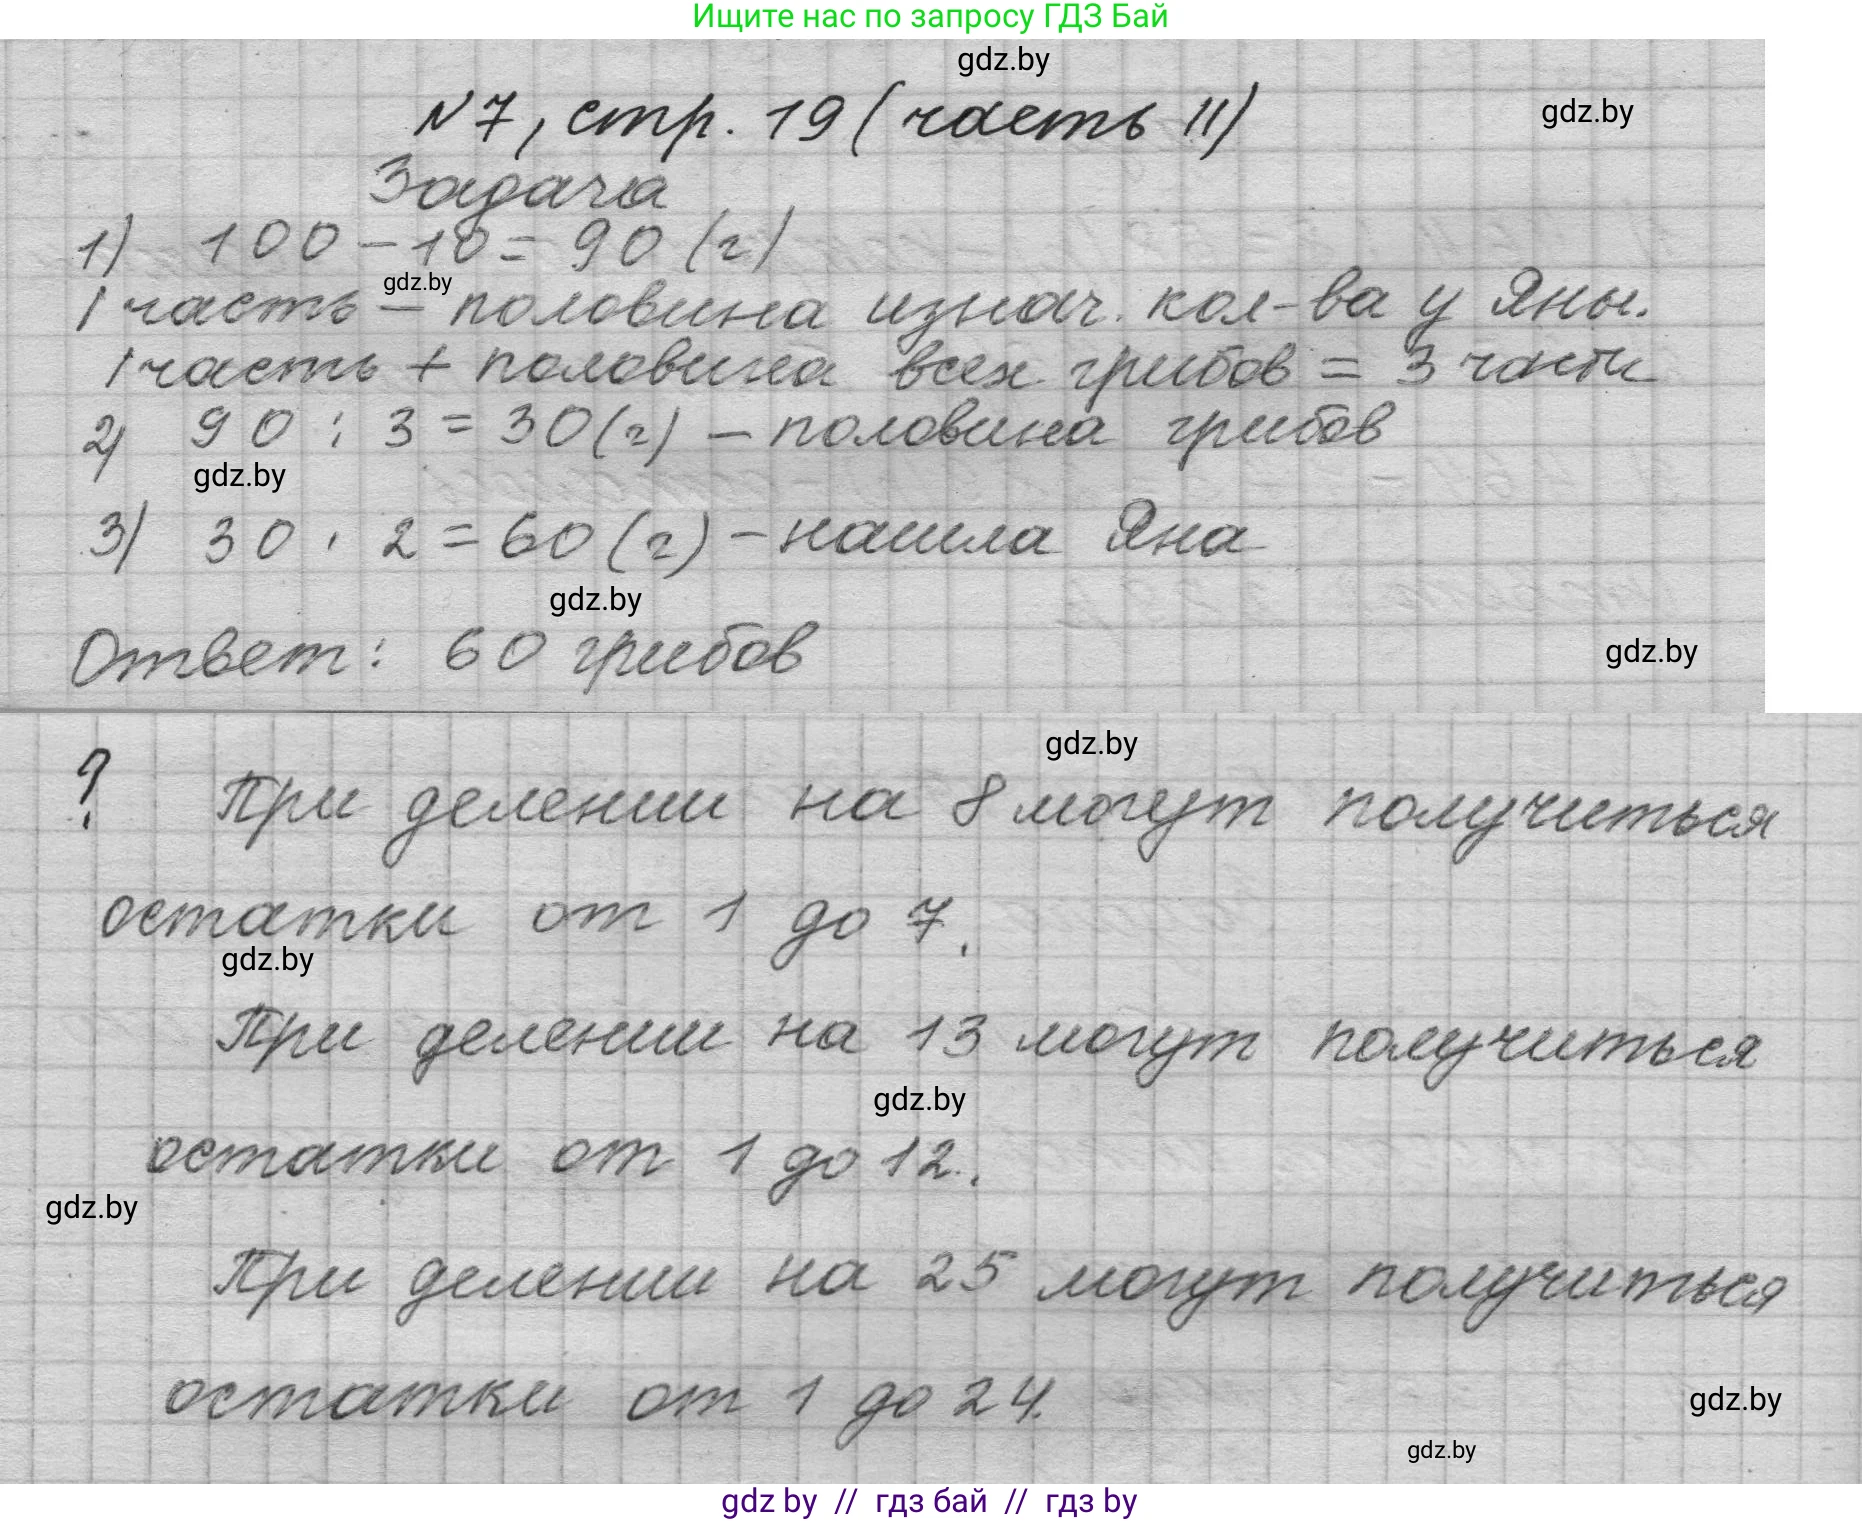 Ищите нас по запросу ГДЗ Бай
gdz.by
№7, стр. 19 (часть II)
gdz.by
Задача
1) 100 - 10 = 90 (г)
gdz.by
1 часть - половина изнач. кол-ва у Яны.
1 часть + половина всех грибов = 3 части
2) 90 : 3 = 30 (г) - половина грибов
gdz.by
3) 30 · 2 = 60 (г) - нашла Яна
gdz.by
Ответ: 60 грибов
gdz.by
gdz.by
? При делении на 8 могут получиться
остатки от 1 до 7.
gdz.by
При делении на 13 могут получиться
gdz.by
остатки от 1 до 12.
gdz.by
При делении на 25 могут получиться
остатки от 1 до 24.
gdz.by
gdz.by
gdz by // гдз бай // гдз by